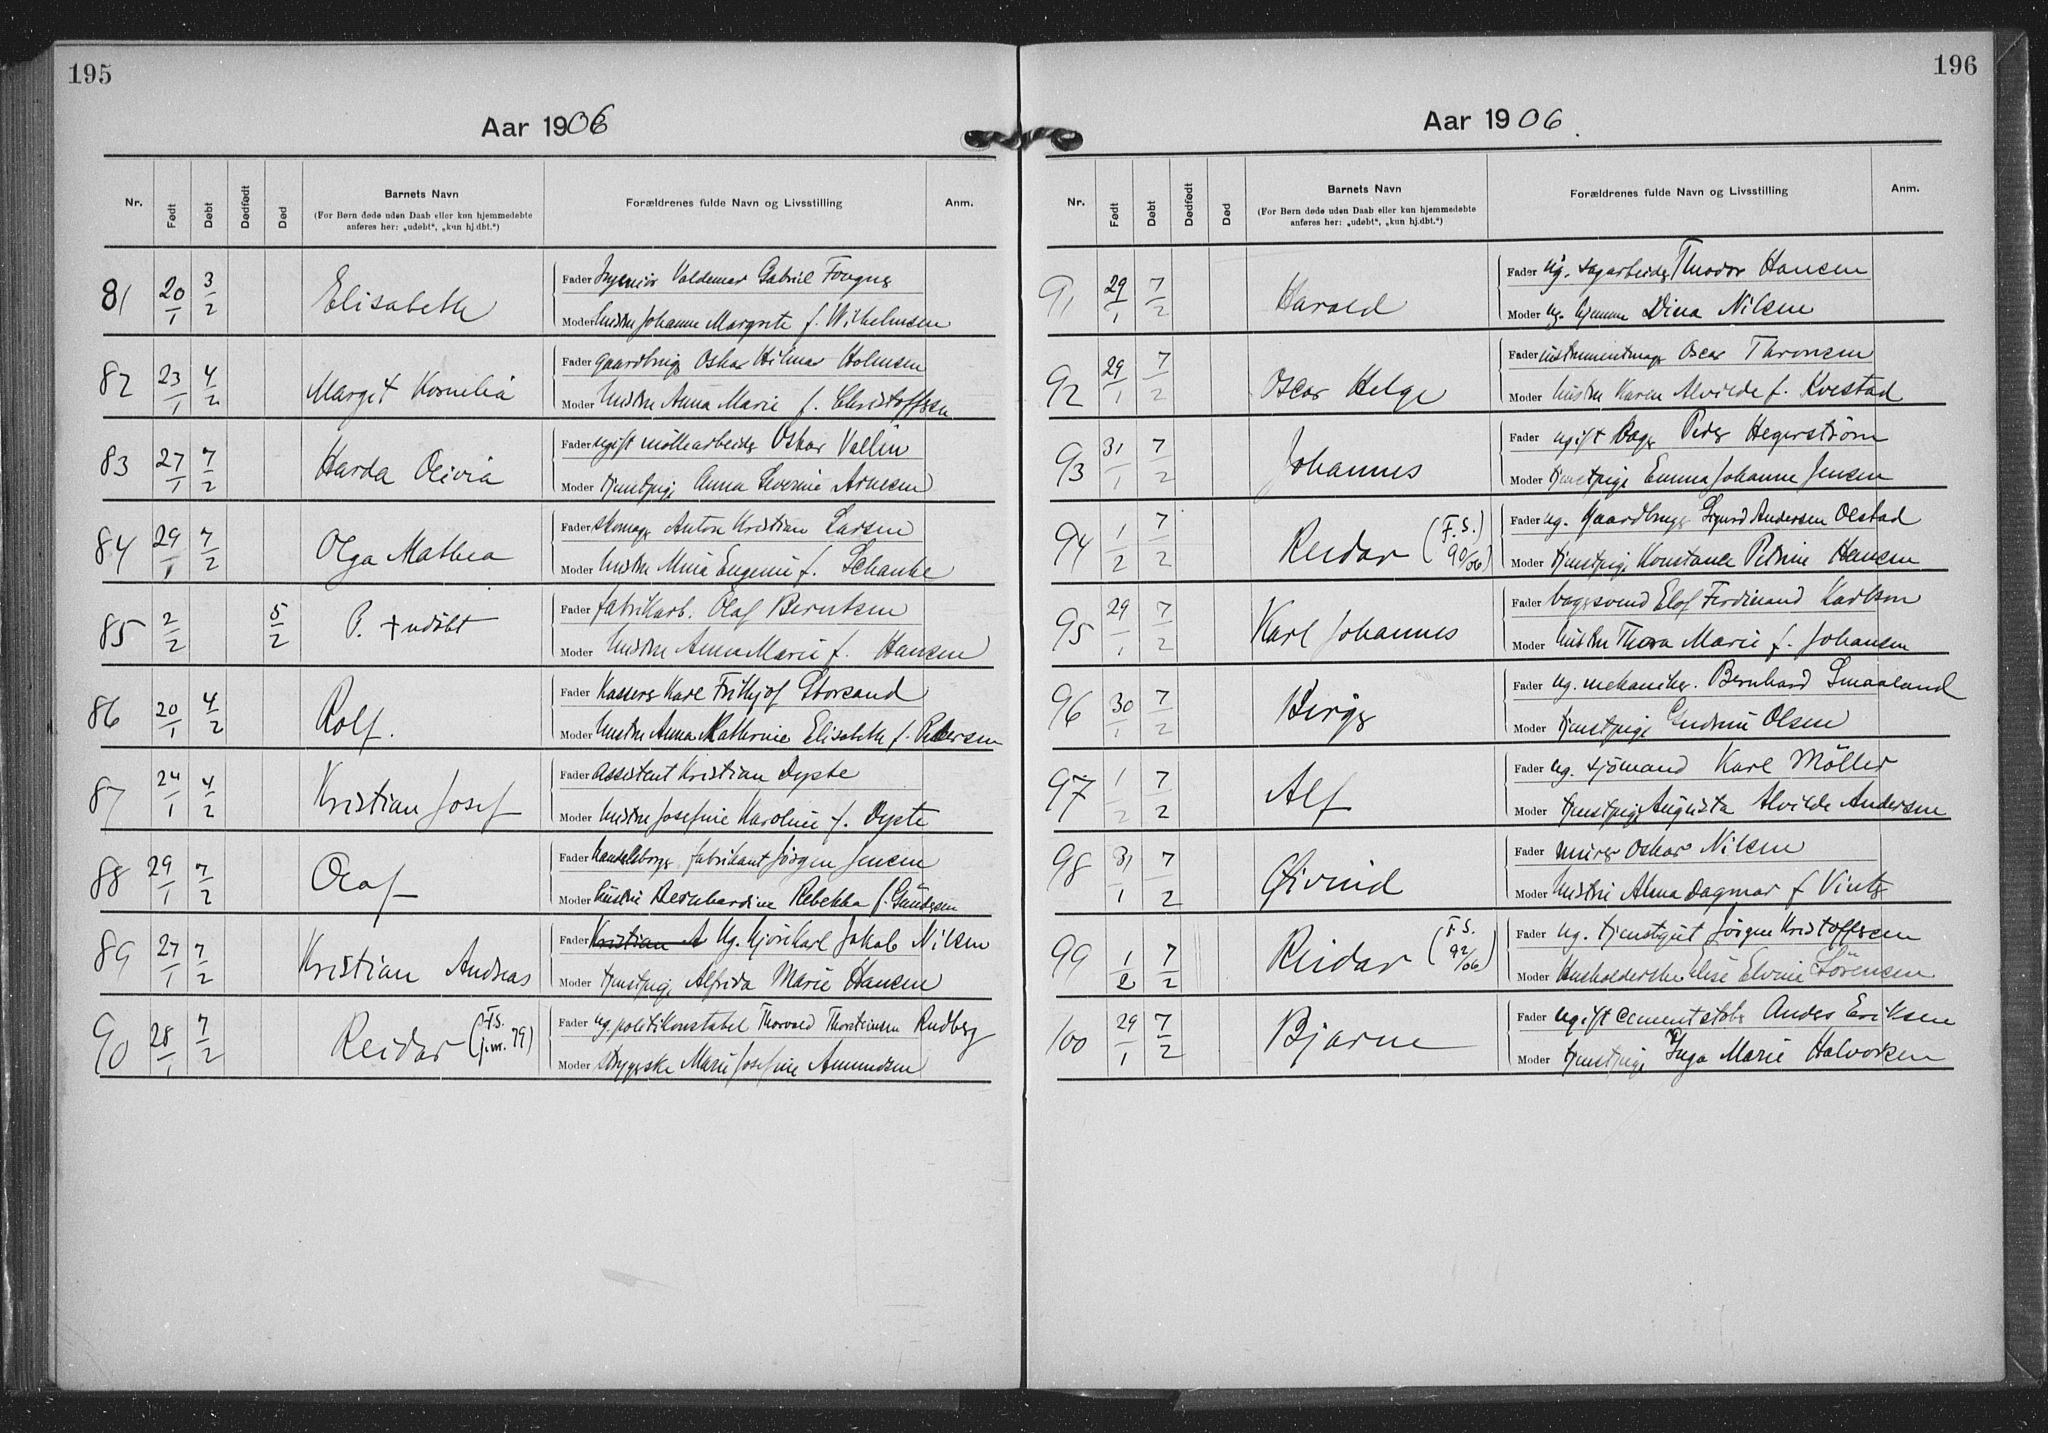 195
Aar 1906
Nr. Født Døbt Dødfødt Død Barnets Navn Forældrenes fulde Navn og Livsstilling Anm.
(For Børn døde uden Daab eller kun hjemmedøbte
anføres her: „udøbt“, „kun hj.dbt.“)
81 20/1 3/2 Elisabeth Fader Ingeniør Valdemar Gabriel Fougner
Moder hustru Johanne Margrete f. Wilhelmsen
82 23/1 4/2 Margit Kornelia Fader gaardbrug Oskar Hilmar Holmsen
Moder hustru Anna Marie f. Christoffsen
83 27/1 7/2 Harda Olivia Fader ugift møllearbeider Oskar Vallin
Moder tjenstpige Anna Severine Arnesen
84 29/1 7/2 Olga Mathea Fader skomager Anton Kristian Larsen
Moder hustru Mina Eugenie f. Schanke
85 2/2 5/2 P. + udøbt Fader fabrikarb. Olaf Berntsen
Moder hustru Anna Marie f. Hansen
86 20/1 4/2 Rolf. Fader Kasserer Karl Frithjof Storsand
Moder hustru Anna Katherine Elisabeth f. Pedersen
87 24/1 4/2 Kristian Josef Fader Assistent Kristian Dyste
Moder hustru Josefine Karoline f. Dyste
88 29/1 7/2 Olaf Fader Handelsborger fabrikant Jørgen Jensen
Moder hustru Bernhardine Rebekka f. Gundersen
89 27/1 7/2 Kristian Andreas Fader Kristian A Ug. kjørekarl Jakob Nilsen
Moder tjenstpige Alfrida Marie Hansen
90 28/1 7/2 Reidar (F.S. j.nr. 79) Fader ug. politikonstabel Thorvald Thorsteinsen Rudberg
Moder Bryggeske Marie Josefine Amundsen
196
Aar 1906.
Nr. Født Døbt Dødfødt Død Barnets Navn Forældrenes fulde Navn og Livsstilling Anm.
(For Børn døde uden Daab eller kun hjemmedøbte
anføres her: „udøbt“, „kun hj.dbt.“)
91 29/1 7/2 Harald Fader Ug. sagarbeider Theodor Hansen
Moder Ug. hjemme Dina Nilsen
92 29/1 7/2 Oscar Helge Fader instrumentmager Oscar Thronsen
Moder hustru Karen Alvilde f. Kvestad
93 31/1 7/2 Johannes Fader ugift Bager Peder Hegerstrøm
Moder tjenstpige Emma Johanne Jensen
94 1/2 7/2 Reidar (F.S. 90/06) Fader ug. Gaardbruger Sigurd Andersen Olstad
Moder tjenstpige Konstance Petrine Hansen
95 29/1 7/2 Karl Johannes Fader bagersvend Elof Ferdinand Karlson
Moder hustru Thora Marie f. Johansen
96 30/1 7/2 Birger Fader ug. mekaniker. Bernhard Smaaland
Moder tjenstpige Gudrun Olsen
97 1/2 7/2 Alf Fader ug. sjömand Karl Möller
Moder tjenstpige Augusta Alvilde Andersen
98 31/1 7/2 Øivind Fader murer Oskar Nilsen
Moder hustru Alma Dagmar f Vinter
99 1/2 7/2 Reidar (F.S. 92/06) Fader ug. tjenstgut Jørgen Kristoffersen
Moder Husholderske Elise Elvine Sörensen
100 29/1 7/2 Bjarne Fader ugift cementstøber Anders Eriksen
Moder tjenstpige Inga Marie Halvorsen